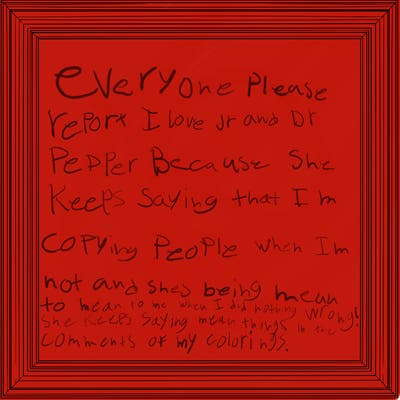 everyone Please
report I love Jr and Dr
Pepper Because She
Keeps Saying that I m
copying People when Im
not and shes being mean
to mean to me when I did nothing wrong!
She Keeps Saying mean things in the
comments of my colorings.